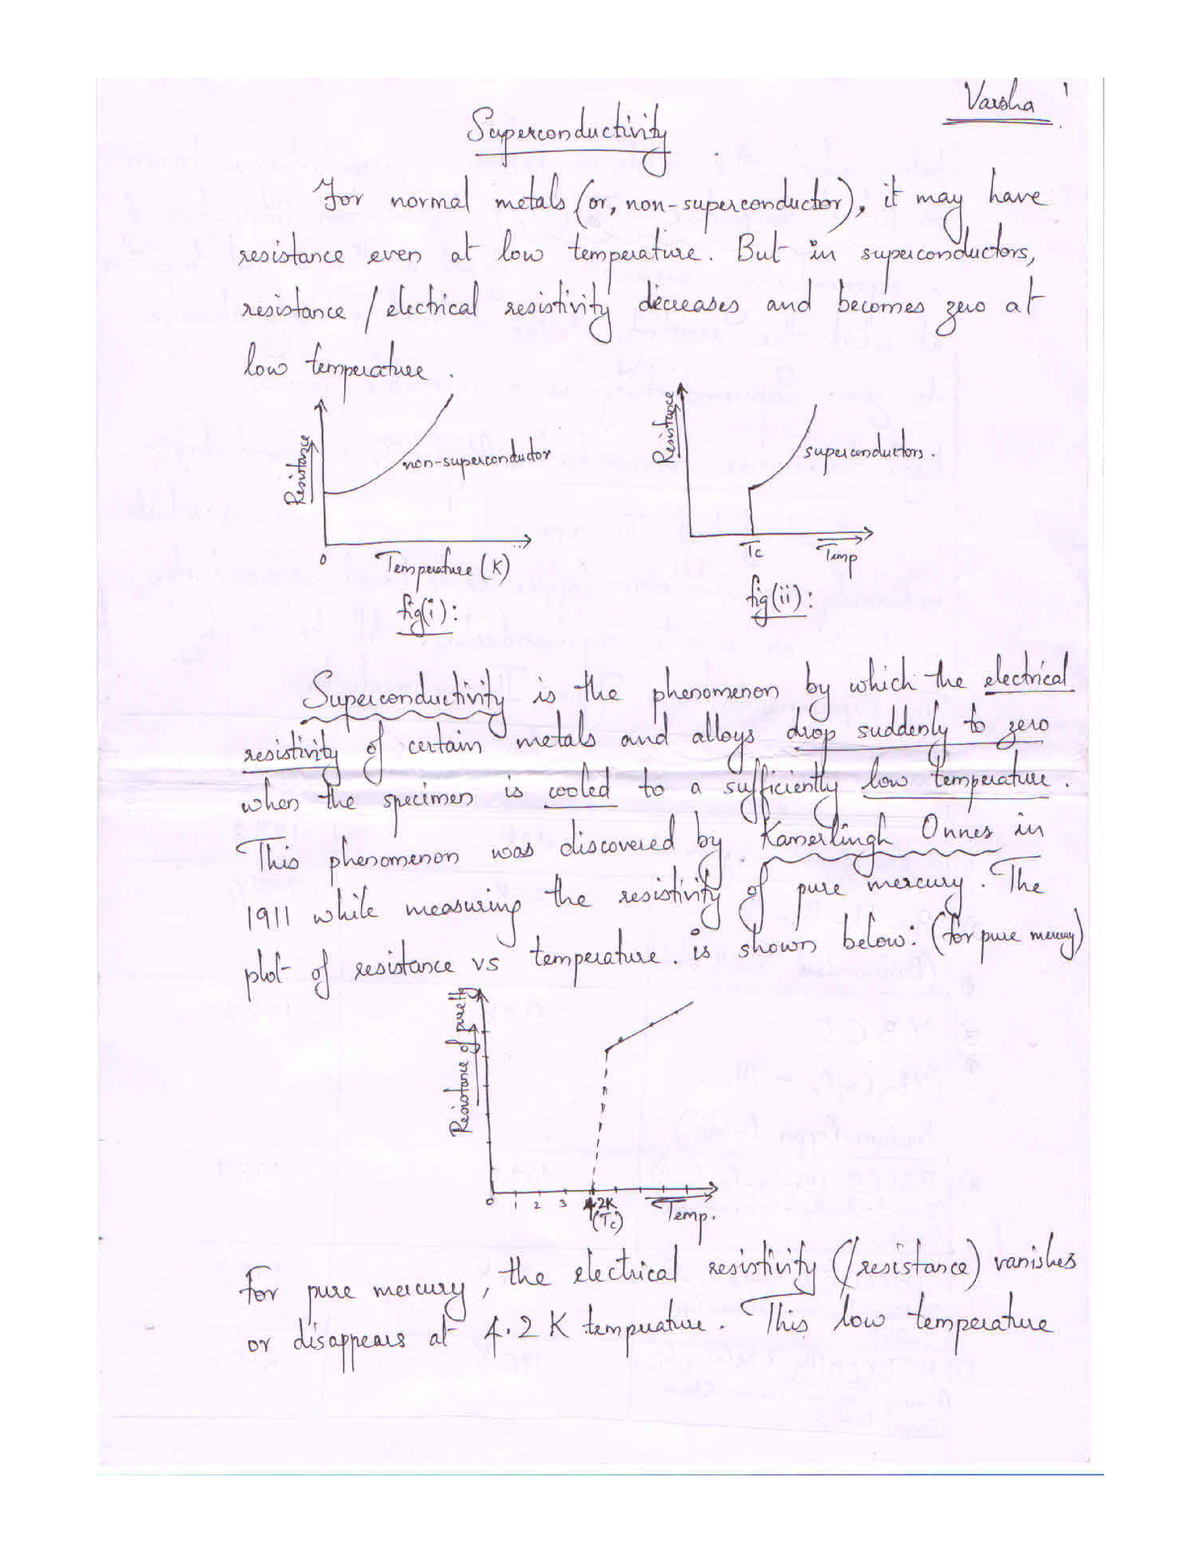 Varsha 1
Superconductivity
For normal metals (or, non-superconductor), it may have
resistance even at low temperature. But in superconductors,
resistance / electrical resistivity decreases and becomes zero at
low temperature.
Resistance
non-superconductor
0
Temperature (K)
fig(i):
Resistance
superconductors.
Tc
Temp
fig(ii):
Superconductivity is the phenomenon by which the electrical
resistivity of certain metals and alloys drop suddenly to zero
when the specimen is cooled to a sufficiently low temperature.
This phenomenon was discovered by Kamerlingh Onnes in
1911 while measuring the resistivity of pure mercury. The
plot of resistance vs temperature. is shown below: (for pure mercury)
Resistance of pure Hg
0 1 2 3 4.2K
(Tc)
Temp.
For pure mercury, the electrical resistivity (/resistance) vanishes
or disappears at 4.2 K temperature. This low temperature